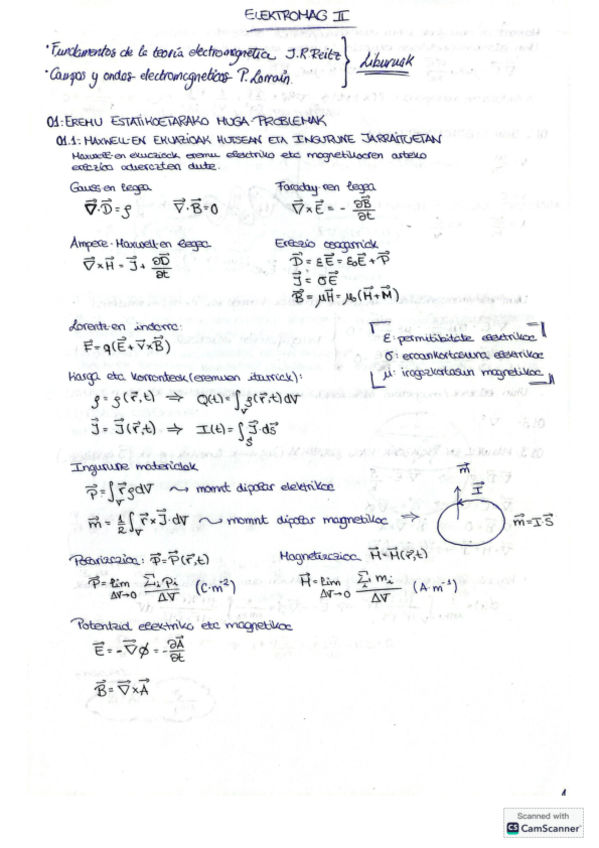 ELEKTROMAG II
· Fundamentos de la teoría electromagnética J.R.Reitz
· Campos y ondas electromagneticos P. Lorrain.
Liburuak
01: EREMU ESTATIKOETARAKO MUGA-PROBLEMAK
01.1: MAXWELL-EN EKUAZIOAK HUTSEAN ETA INGURUNE JARRAITUETAN
Maxwell-en ekuazioak eremu elektriko eta magnetikoaren arteko
erlazioa adierazten dute.
Gauss-en legea Faraday-ren legea
∇⃗·D⃗ = ρ ∇⃗·B⃗ = 0 ∇⃗×E⃗ = - ∂B⃗/∂t
Ampere-Maxwell-en legea Erlazio osagarriak
∇⃗×H⃗ = J⃗ + ∂D⃗/∂t D⃗ = εE⃗ = ε₀E⃗ + P⃗
J⃗ = σE⃗
B⃗ = μH⃗ = μ₀(H⃗+M⃗)
Lorentz-en indarra:
F⃗ = q(E⃗ + v⃗×B⃗)
ε: permitibitate elektrikoa
σ: eroankortasuna elektrikoa
μ: iragazkortasun magnetikoa
Karga eta korronteak (eremuen iturriak):
ρ = ρ(r⃗,t) ⇒ Q(t) = ∫ᵥ ρ(r⃗,t) dV
J⃗ = J⃗(r⃗,t) ⇒ I(t) = ∫ₛ J⃗·dS⃗
Ingurune materialak
P⃗ = ∫ᵥ r⃗ρdV ⤳ momnt dipolar elektrikoa
m⃗ = 1/2 ∫ᵥ r⃗×J⃗·dV ⤳ momnt dipolar magnetikoa ⇒
m⃗
I⃗
m⃗ = I·S⃗
Polarizazioa: P⃗ = P⃗(r⃗,t) Magnetizazioa M⃗ = M⃗(r⃗,t)
P⃗ = lim ΔV→0 Σᵢ pᵢ / ΔV (C·m⁻²) M⃗ = lim ΔV→0 Σᵢ mᵢ / ΔV (A·m⁻¹)
Potentzial elektriko eta magnetikoa
E⃗ = -∇⃗φ = - ∂A⃗/∂t
B⃗ = ∇⃗×A⃗
1
Scanned with
CS CamScanner